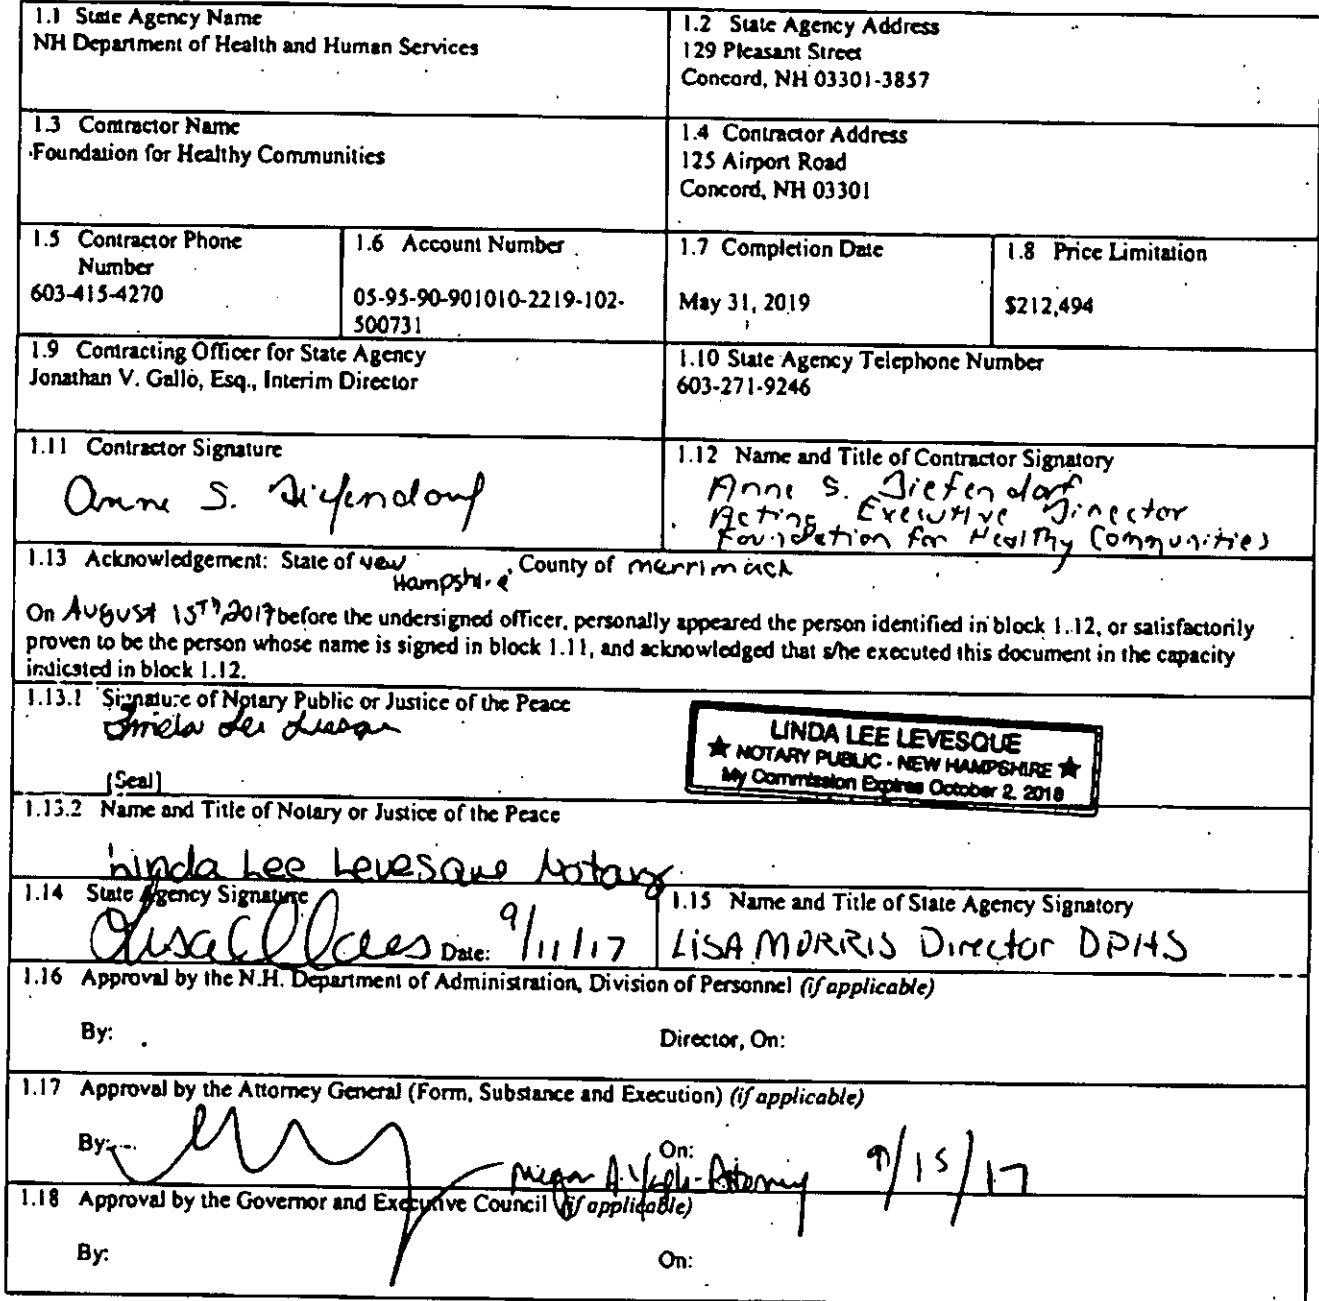 1.1 State Agency Name
NH Department of Health and Human Services
1.2 State Agency Address
129 Pleasant Street
Concord, NH 03301-3857
1.3 Contractor Name
Foundation for Healthy Communities
1.4 Contractor Address
125 Airport Road
Concord, NH 03301
1.5 Contractor Phone
Number
603-415-4270
1.6 Account Number
05-95-90-901010-2219-102-
500731
1.7 Completion Date
May 31, 2019
1.8 Price Limitation
$212,494
1.9 Contracting Officer for State Agency
Jonathan V. Gallo, Esq., Interim Director
1.10 State Agency Telephone Number
603-271-9246
1.11 Contractor Signature
Anne S. Diefendorf
1.12 Name and Title of Contractor Signatory
Anne S. Diefendorf
Acting Executive Director
Foundation for Healthy Communities
1.13 Acknowledgement: State of New Hampshire, County of Merrimack
On August 15TH 2017 before the undersigned officer, personally appeared the person identified in block 1.12, or satisfactorily
proven to be the person whose name is signed in block 1.11, and acknowledged that s/he executed this document in the capacity
indicated in block 1.12.
1.13.1 Signature of Notary Public or Justice of the Peace
[Seal]
LINDA LEE LEVESQUE
★ NOTARY PUBLIC - NEW HAMPSHIRE ★
My Commission Expires October 2, 2018
1.13.2 Name and Title of Notary or Justice of the Peace
Linda Lee Levesque Notary
1.14 State Agency Signature
Date: 9/11/17
1.15 Name and Title of State Agency Signatory
LISA MORRIS Director DPHS
1.16 Approval by the N.H. Department of Administration, Division of Personnel (if applicable)
By:
Director, On:
1.17 Approval by the Attorney General (Form, Substance and Execution) (if applicable)
By:
On:
Megan A. - Attorney 9/15/17
1.18 Approval by the Governor and Executive Council (if applicable)
By:
On: